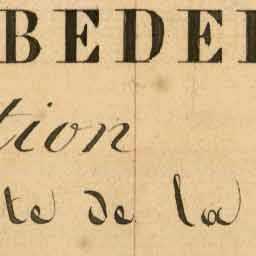 BEDE
tion
te de la